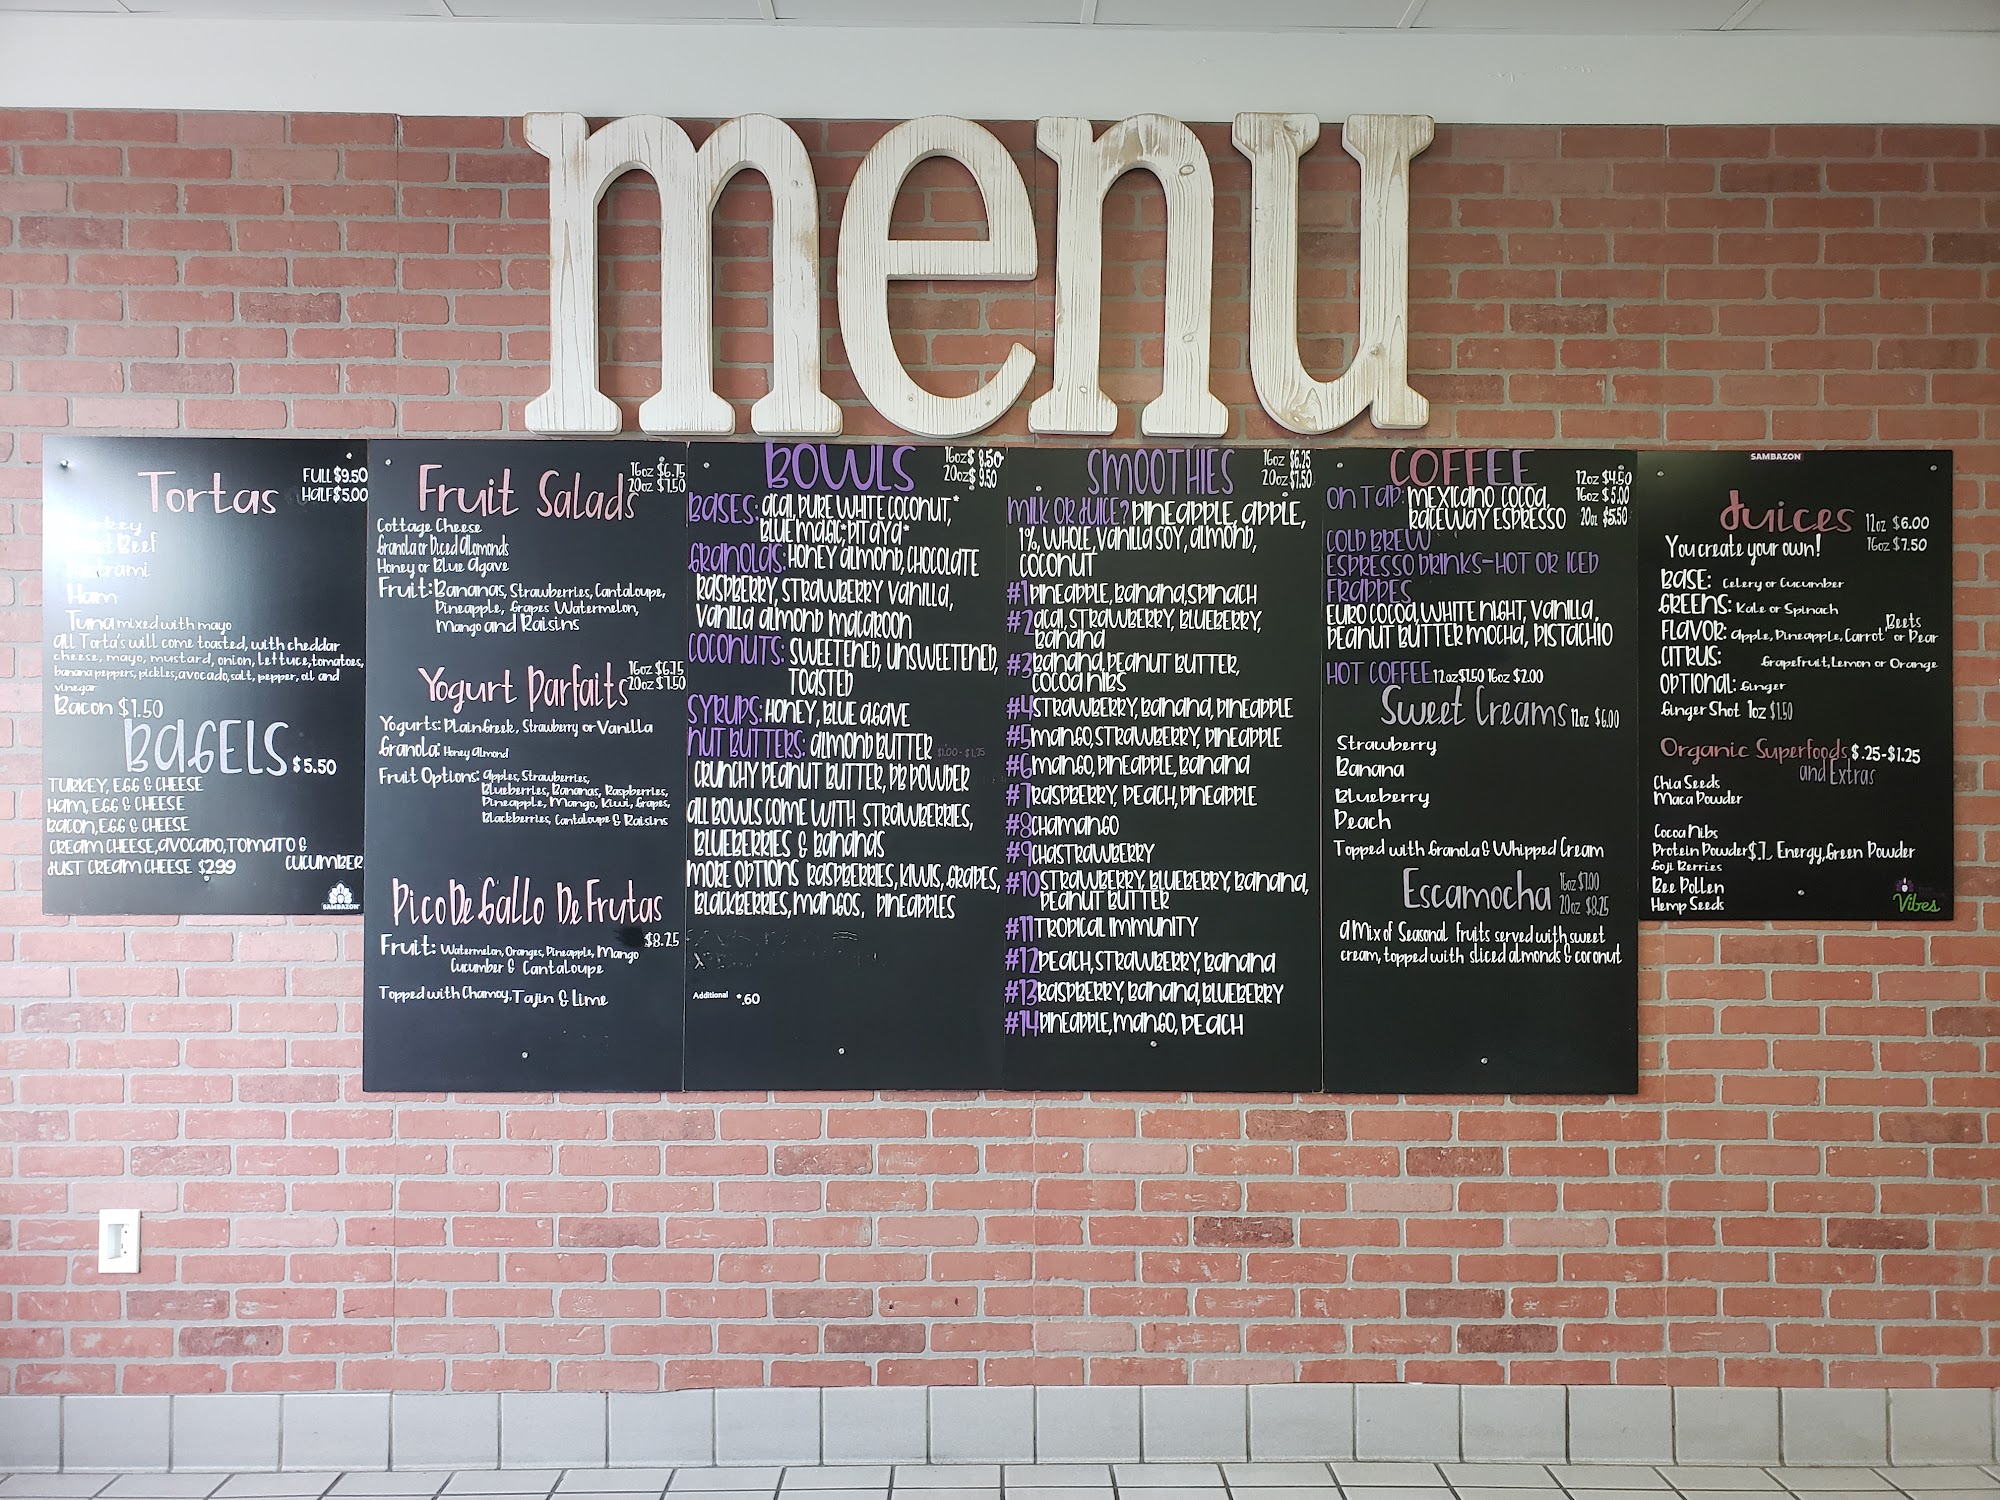 menu
Tortas
FULL $9.50
HALF $5.00
Ham
Tuna mixed with mayo
all Torta's will come toasted, with cheddar
cheese, mayo, mustard, onion, lettuce, tomatoes,
banana peppers, pickles, avocado, salt, pepper, oil and
vinegar
Bacon $1.50
BAGELS $5.50
TURKEY, EGG & CHEESE
HAM, EGG & CHEESE
BACON, EGG & CHEESE
CREAM CHEESE, AVOCADO, TOMATO &
CUCUMBER
JUST CREAM CHEESE $2.99
SAMBAZON
Fruit Salads
16oz $6.75
20oz $7.50
Cottage Cheese
Granola or Diced Almonds
Honey or Blue Agave
Fruit: Bananas, Strawberries, Cantaloupe,
Pineapple, Grapes Watermelon,
Mango and Raisins
Yogurt Parfaits
16oz $6.75
20oz $7.50
Yogurts: Plain Greek, Strawberry or Vanilla
Granola: Honey Almond
Fruit Options: Apples, Strawberries,
Blueberries, Bananas, Raspberries,
Pineapple, Mango, Kiwi, Grapes,
Blackberries, Cantaloupe & Raisins
Pico De Gallo De Frutas
$8.25
Fruit: Watermelon, Oranges, Pineapple, Mango
Cucumber & Cantaloupe
Topped with Chamoy, Tajin & Lime
BOWLS
16oz $ 8.50
20oz $ 9.50
BASES: ACAI, PURE WHITE COCONUT,*
BLUE MAGIC,* PITAYA*
GRANOLAS: HONEY ALMOND, CHOCOLATE
RASPBERRY, STRAWBERRY VANILLA,
VANILLA ALMOND MACAROON
COCONUTS: SWEETENED, UNSWEETENED,
TOASTED
SYRUPS: HONEY, BLUE AGAVE
NUT BUTTERS: ALMOND BUTTER $1.00 - $1.75
CRUNCHY PEANUT BUTTER, PB POWDER
ALL BOWLS COME WITH STRAWBERRIES,
BLUEBERRIES & BANANAS
MORE OPTIONS RASPBERRIES, KIWIS, GRAPES,
BLACKBERRIES, MANGOS, PINEAPPLES
Additional *.60
SMOOTHIES
16oz $6.25
20oz $7.50
MILK OR JUICE? PINEAPPLE, APPLE,
1%, WHOLE, VANILLA SOY, ALMOND,
COCONUT
#1 PINEAPPLE, BANANA, SPINACH
#2 ACAI, STRAWBERRY, BLUEBERRY,
BANANA
#3 BANANA, PEANUT BUTTER,
COCOA NIBS
#4 STRAWBERRY, BANANA, PINEAPPLE
#5 MANGO, STRAWBERRY, PINEAPPLE
#6 MANGO, PINEAPPLE, BANANA
#7 RASPBERRY, PEACH, PINEAPPLE
#8 CHAMANGO
#9 CHASTRAWBERRY
#10 STRAWBERRY, BLUEBERRY, BANANA,
PEANUT BUTTER
#11 TROPICAL IMMUNITY
#12 PEACH, STRAWBERRY, BANANA
#13 RASPBERRY, BANANA, BLUEBERRY
#14 PINEAPPLE, MANGO, PEACH
COFFEE
12oz $4.50
16oz $5.00
20oz $5.50
ON TAP: MEXICANO COCOA
RACEWAY ESPRESSO
COLD BREW
ESPRESSO DRINKS-HOT OR ICED
FRAPPES
EURO COCOA, WHITE NIGHT, VANILLA,
PEANUT BUTTER MOCHA, PISTACHIO
HOT COFFEE 12oz $1.50 16oz $2.00
Sweet Creams 12oz $6.00
Strawberry
Banana
Blueberry
Peach
Topped with Granola & Whipped Cream
Escamocha
16oz $7.00
20oz $8.25
A Mix of Seasonal Fruits served with sweet
cream, topped with sliced almonds & coconut
SAMBAZON
Juices
12oz $6.00
16oz $7.50
You create your own!
BASE: Celery or Cucumber
GREENS: Kale or Spinach
Beets
FLAVOR: Apple, Pineapple, Carrot, or Pear
CITRUS: Grapefruit, Lemon or Orange
OPTIONAL: Ginger
Ginger Shot 1oz $1.50
Organic Superfoods $.25-$1.25
and Extras
Chia Seeds
Maca Powder
Cocoa Nibs
Protein Powder $.1_ Energy, Green Powder
Goji Berries
Bee Pollen
Hemp Seeds
Vibes